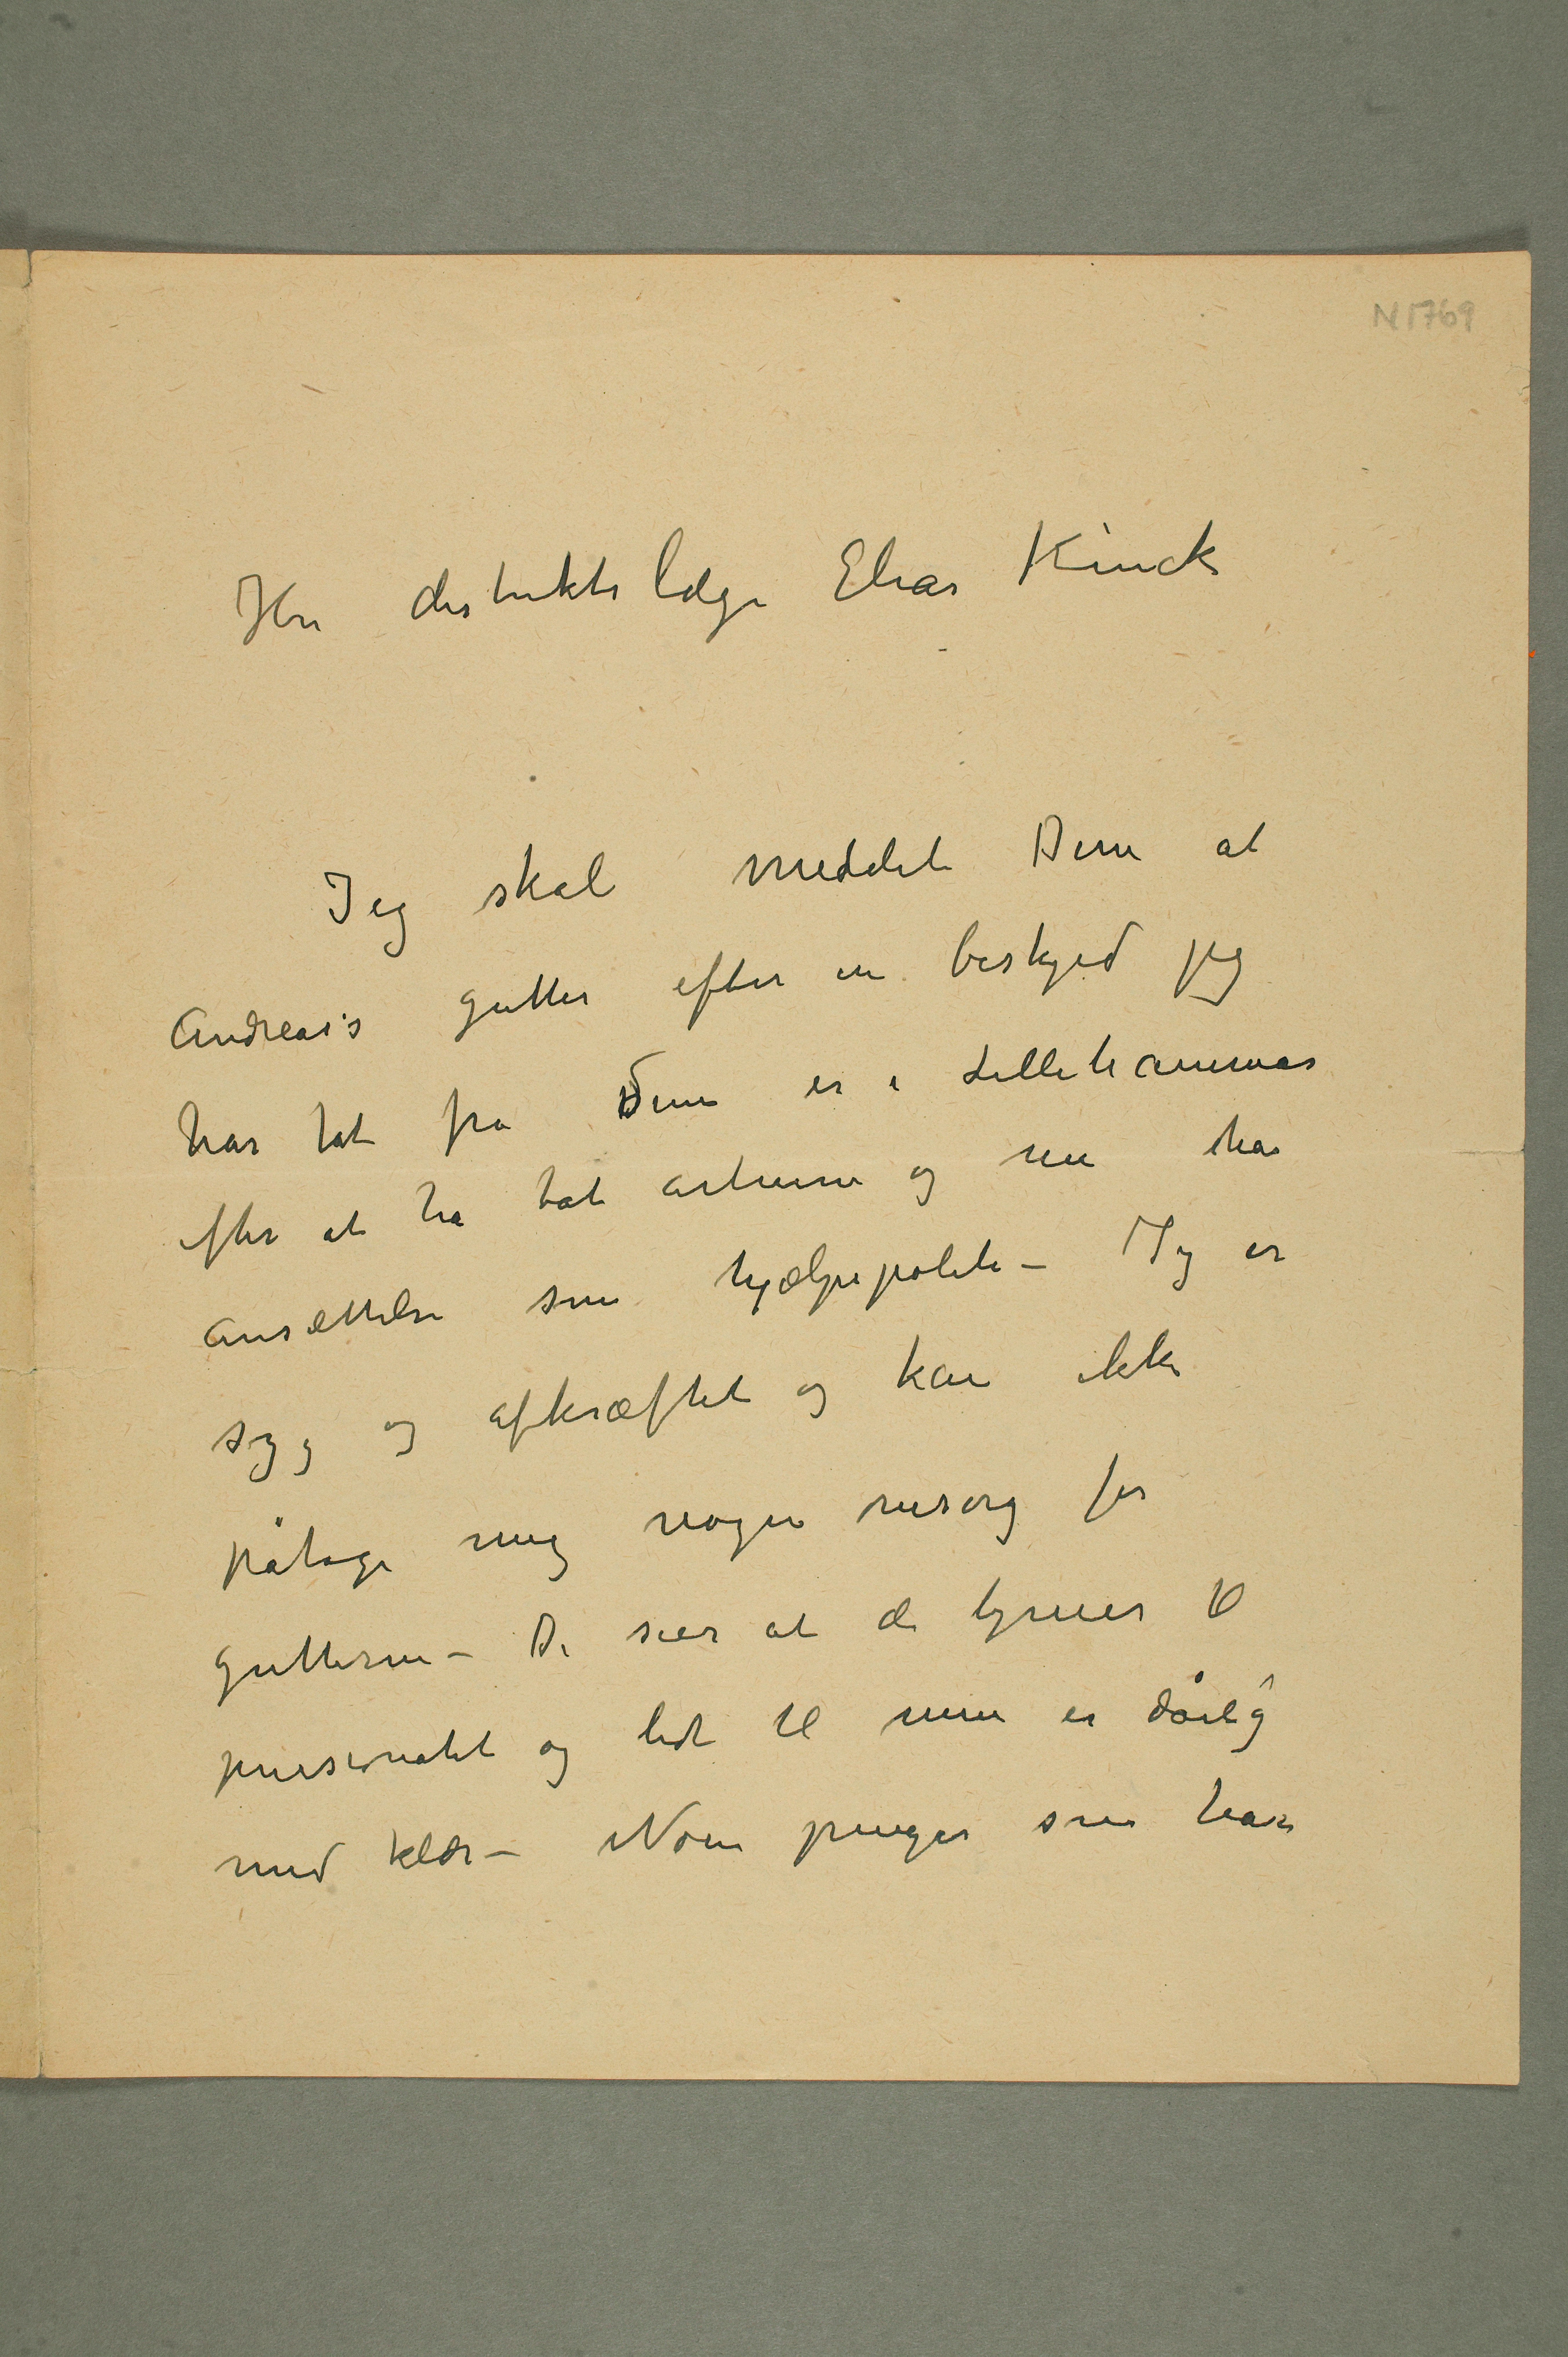 N 1769
Hr distriktslæge Elias Kinck
Jeg skal meddele Dem at
Andreas's gutter efter en beskjed jeg
har fåt fra Dem er i Lillehammer
efter at ha tat artium og nu har
ansættelse som hjælpepoliti – Jeg er
syg og afkræftet og kan ikke
påtage mig nogen omsorg for
gutterne – De sier at de trænger til
pensionatet og lidt til men er dårlig
med klær – Noen penger som har